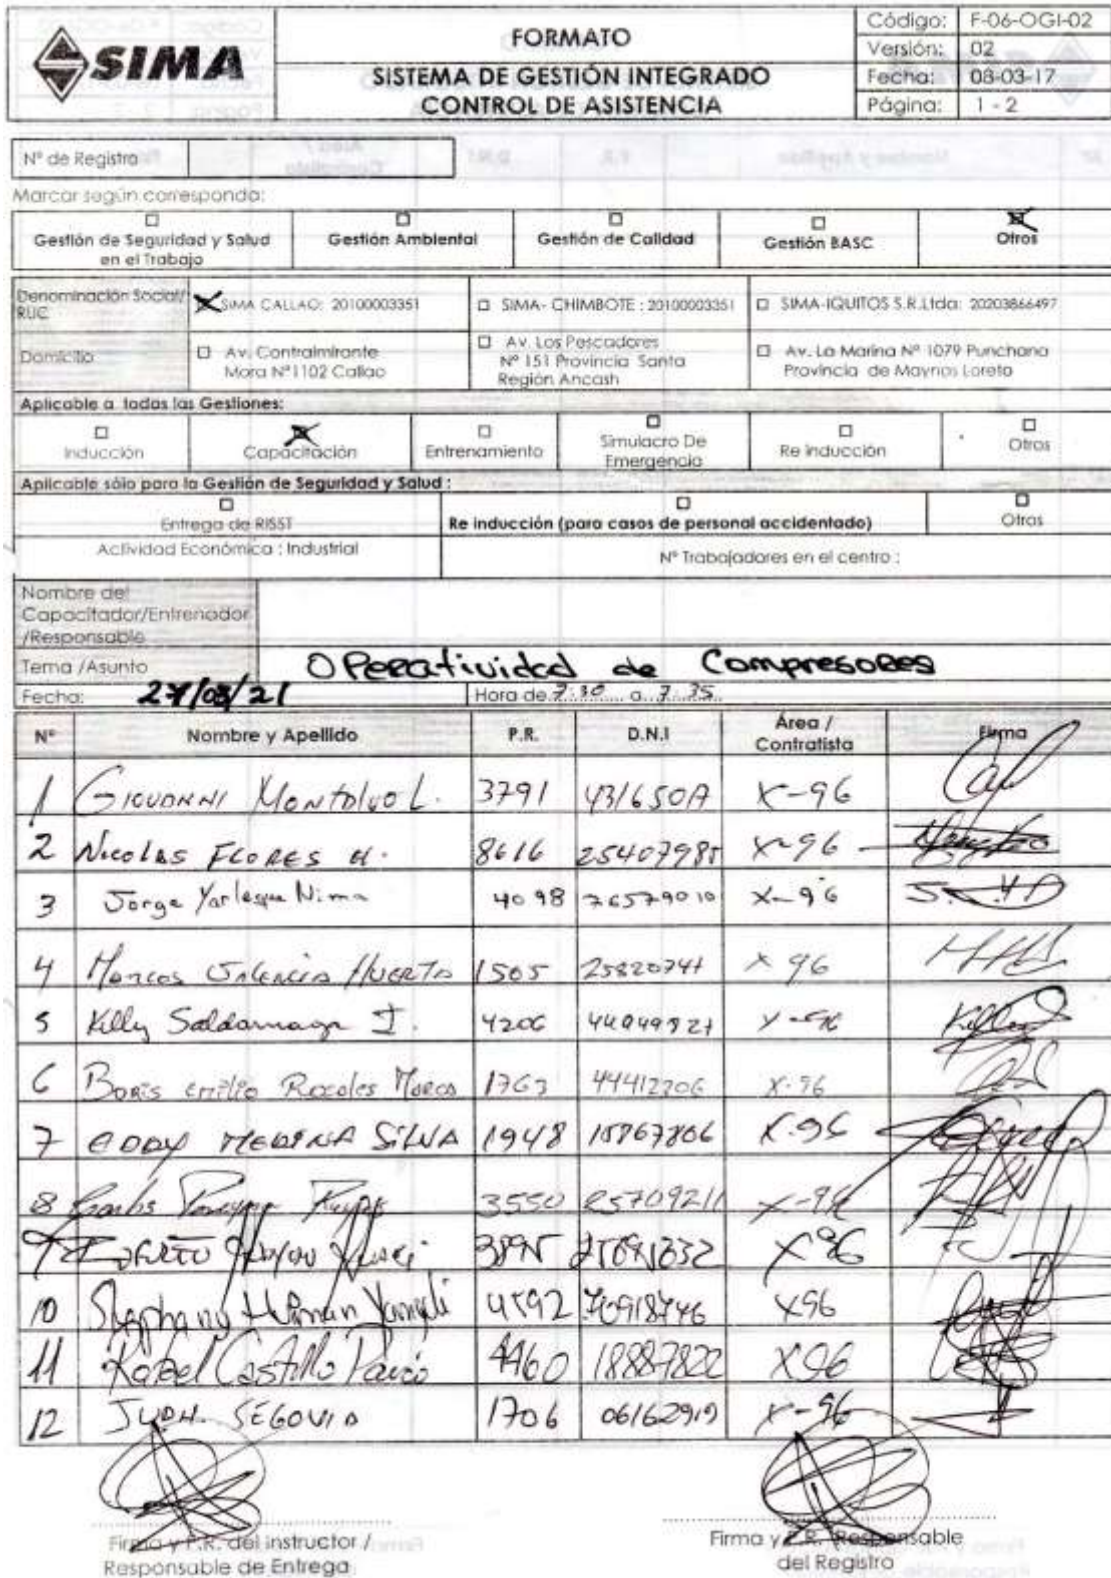 SIMA
FORMATO
SISTEMA DE GESTIÓN INTEGRADO
CONTROL DE ASISTENCIA
Código: F-06-OGI-02
Versión: 02
Fecha: 08-03-17
Página: 1 - 2
Nº de Registro
Marcar según corresponda:
Gestión de Seguridad y Salud en el Trabajo
Gestión Ambiental
Gestión de Calidad
Gestión BASC
Otros
Denominación Social/ RUC
SIMA CALLAO: 20100003351
SIMA- CHIMBOTE : 20100003351
SIMA-IQUITOS S.R.Ltda: 20203866497
Domicilio
Av. Contralmirante Mora Nº1102 Callao
Av. Los Pescadores Nº 151 Provincia Santa Región Ancash
Av. La Marina Nº 1079 Punchana Provincia de Maynas Loreto
Aplicable a todas las Gestiones:
Inducción
Capacitación
Entrenamiento
Simulacro De Emergencia
Re inducción
Otros
Aplicable sólo para la Gestión de Seguridad y Salud :
Entrega de RISST
Re inducción (para casos de personal accidentado)
Otros
Actividad Económica : Industrial
Nº Trabajadores en el centro :
Nombre del Capacitador/Entrenador /Responsable
Tema /Asunto Operatividad de Compresores
Fecha: 27/03/21 Hora de 7:30 a 7:35
Nº Nombre y Apellido P.R. D.N.I Área / Contratista Firma
1 Giovanni Montalvo L. 3791 X-96
2 Nicolas FLORES H. 8616 2540798 X-96
3 Jorge Yarleque Nima 4098 76579010 X-96
4 Marcos Valencia Huerta 1505 25820741 X 96
5 Killy Saldarriaga I. 4206 44949821 X-96
6 Boris emilio Rosales Marcos 1763 44412206 X-96
7 EDDY MEDINA SILVA 1948 15867806 X-96
8 Carlos 3550 25709211 X-96
9 X96
10 Stephany Huaman 4592 70918746 X96
11 Rafael Castillo 4460 18887822 X96
12 JUAN. SEGOVIA 1706 06162919 X-96
Firma y P.R. del instructor /
Responsable de Entrega
Firma y P.R. Responsable
del Registro